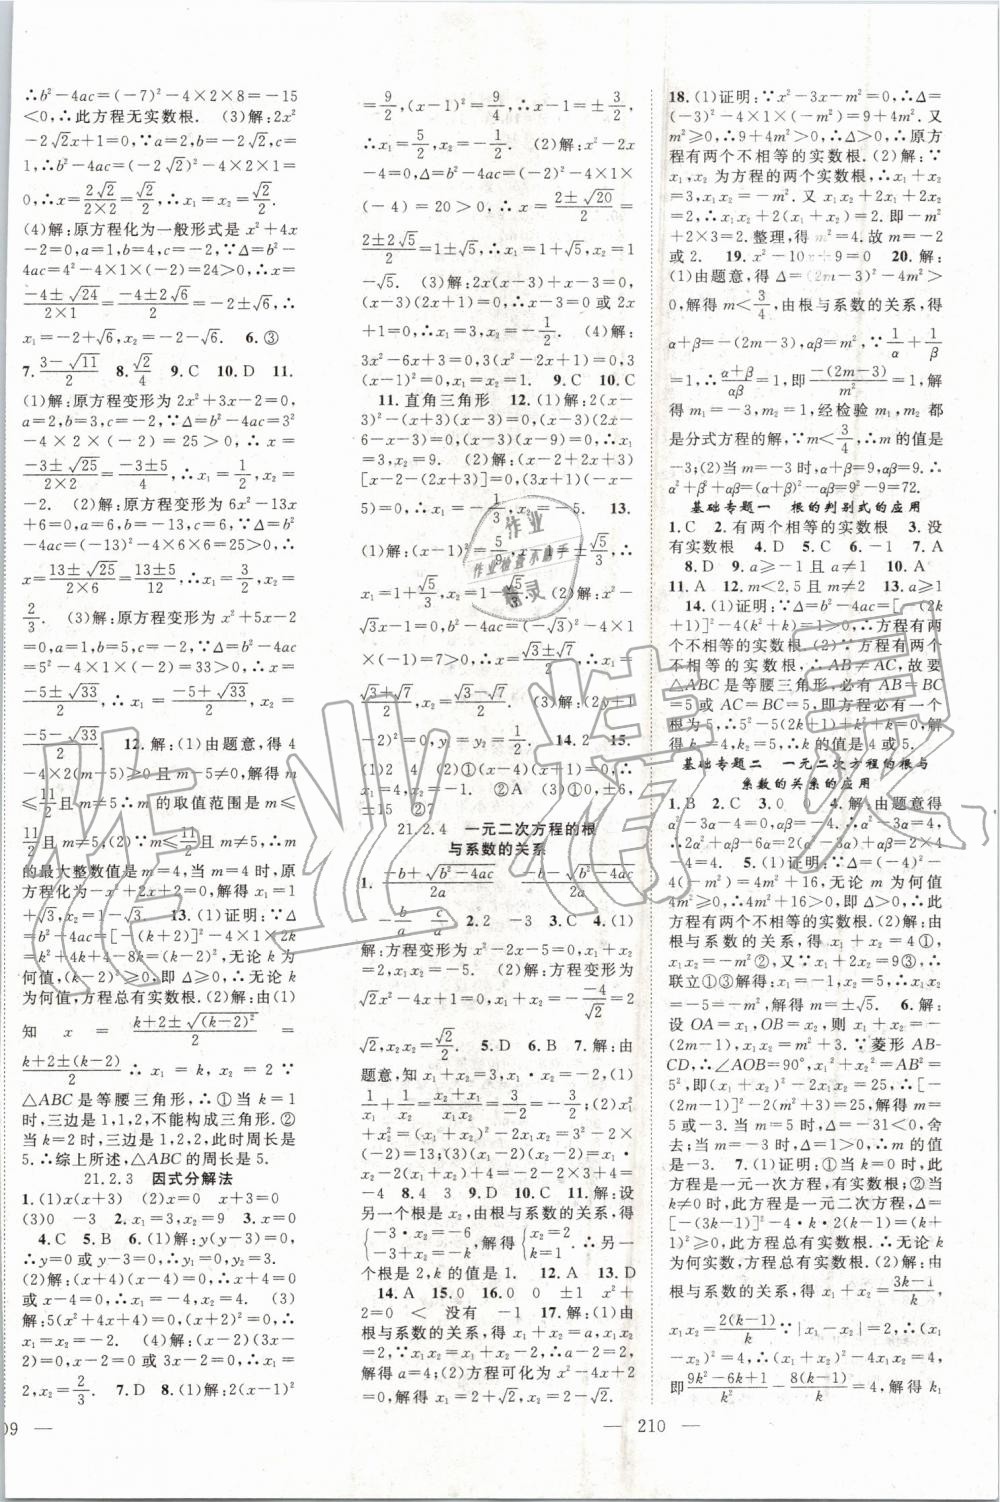 ∴b²-4ac=(-7)²-4×2×8=-15
<0,∴此方程无实数根. (3)解:2x²
-2√2x+1=0,∵a=2,b=-2√2,c=
1,∴b²-4ac=(-2√2)²-4×2×1=
0,∴x=2√2/(2×2)=√2/2,∴x₁=x₂=√2/2.
(4)解:原方程化为一般形式是x²+4x
-2=0,a=1,b=4,c=-2,∵Δ=b²-
4ac=4²-4×1×(-2)=24>0,∴x=
(-4±√24)/(2×1)=(-4±2√6)/2=-2±√6,∴
x₁=-2+√6,x₂=-2-√6. 6.③
7.(3-√11)/2 8.√2/4 9.C 10.D 11.
(1)解:原方程变形为2x²+3x-2=0,
a=2,b=3,c=-2,∵Δ=b²-4ac=3²
-4×2×(-2)=25>0,∴x=
(-3±√25)/(2×2)=(-3±5)/4,∴x₁=1/2,x₂=
-2. (2)解:原方程变形为6x²-13x
+6=0,a=6,b=-13,c=6,∵Δ=b²-
4ac=(-13)²-4×6×6=25>0,∴
x=(13±√25)/(2×6)=(13±5)/12,∴x₁=3/2,x₂=
2/3. (3)解:原方程变形为x²+5x-2
=0,a=1,b=5,c=-2,∵Δ=b²-4ac
=5²-4×1×(-2)=33>0,∴x=
(-5±√33)/2,∴x₁=(-5+√33)/2,x₂=
(-5-√33)/2. 12.解:(1)由题意,得4
-4×2(m-5)≥0且m-5≠0,解得m
≤11/2且m≠5,∴m的取值范围是m≤
11/2且m≠5.(2)∵m≤11/2且m≠5,∴m
的最大整数值是m=4,当m=4时,原
方程化为-x²+2x+2=0,解得x₁=1
+√3,x₂=1-√3. 13.(1)证明:∵Δ
=b²-4ac=[-(k+2)]²-4×1×2k
=k²+4k+4-8k=(k-2)²,无论k为
何值,(k-2)²≥0,即Δ≥0,∴无论k
为何值,方程总有实数根.(2)解:由(1)
知x=(k+2±√(k-2)²)/2=
(k+2±(k-2))/2,∴x₁=k,x₂=2∵
△ABC是等腰三角形,∴①当k=1
时,三边是1,1,2,不能构成三角形.②
当k=2时,三边是1,2,2,此时周长是
5.∴综上所述,△ABC的周长是5.
21.2.3 因式分解法
1.(1)x(x+3) (2)x=0 x+3=0
(3)0 -3 2.x₁=3,x₂=9 3.x=0
4.C 5.B 6.(1)解:y(y-3)=0,
∴y=0或y-3=0,∴y₁=0,y₂=3.
(2)解:(x+4)(x-4)=0,∴x+4=0
或x-4=0,∴x₁=-4,x₂=4. (3)
解:5(x²+4x+4)=0,(x+2)²=0,∴
x₁=x₂=-2. (4)解:(x-2)(3x-
2)=0,∴x-2=0或3x-2=0,∴x₁=
2,x₂=2/3. 7.D 8.(1)解:2(x-1)²
09 —
=9/2,(x-1)²=9/4,∴x-1=±3/2,
∴x₁=5/2,x₂=-1/2. (2)解:x²-2x
-4=0,Δ=b²-4ac=(-2)²-4×1×
(-4)=20>0,∴x=(2±√20)/2=
(2±2√5)/2=1±√5,∴x₁=1+√5,x₂=1
-√5. (3)解:2x(x-3)+x-3=0,
(x-3)(2x+1)=0,∴x-3=0或2x
+1=0,∴x₁=3,x₂=-1/2. (4)解:
3x²-6x+3=0,3(x²-2x+1)=0,3
(x-1)²=0,x₁=x₂=1. 9.C 10.C
11.直角三角形 12.(1)解:2(x-
3)²-(x+3)(x-3)=0,(x-3)(2x
-6-x-3)=0,(x-3)(x-9)=0,∴x₁
=3,x₂=9. (2)解:[x-2+2(x+3)]
[x-2-(2x+3)]=0,(3x+1)(-x-
5)=0,∴x₁=-1/3,x₂=-5. 13.
(1)解:(x-1)²=5/9,x-1=±√5/3,∴
x₁=1+√5/3,x₂=1-√5/3. (2)解:x²-
√3x-1=0,b²-4ac=(-√3)²-4×1
×(-1)=7>0,∴x=(√3±√7)/2,∴x₁=
(√3+√7)/2,x₂=(√3-√7)/2. (3)解:(2y+1
-2)²=0,y₁=y₂=1/2. 14.2 15.
(1)2 4 (2)①(x-4)(x-2)=0,x₁
=4,x₂=2 ②A (3)①±9,±6,
±15 ②7
21.2.4 一元二次方程的根
与系数的关系
1.(-b+√(b²-4ac))/2a (-b-√(b²-4ac))/2a
-b/a c/a 2.2 -3 3.C 4.(1)
解:方程变形为x²-2x-5=0,∴x₁+
x₂=2,x₁x₂=-5. (2)解:方程变形为
√2x²-4x+1=0,x₁+x₂=-(-4)/√2=2
√2,x₁x₂=√2/2. 5.D 6.B 7.解:由
题意,知x₁+x₂=3,x₁x₂=-2.(1)
1/x₁+1/x₂=(x₂+x₁)/(x₁x₂)=3/-2=-3/2;(2)x₁²
+x₂²=(x₁+x₂)²-2x₁x₂=3²-2×
(-2)=13;(3)x₁²x₂+x₁x₂²=-2×3=
-6. 8.4 3 9.D 10.C 11.解:设
另一个根是x₂,由根与系数的关系,得
{-3·x₂=-6 -3+x₂=-k,解得{x₂=2 k=1.∴另一
个根是2,k的值是1. 12.A 13.D
14.A 15.0 16.0 0 ±1 x²+
2=0 < 没有 -1 17.解:(1)由
根与系数的关系,得x₁+x₂=a,x₁x₂
=2.∵x₁x₂=x₁+x₂-2,∴a-2=2,
解得a=4;(2)方程可化为x²-4x+2
=0,解得x₁=2+√2,x₂=2-√2.
— 210 —
18.(1)证明:∵x²-3x-m²=0,∴Δ=
(-3)²-4×1×(-m²)=9+4m².又
m²≥0,∴9+4m²>0,∴Δ>0,∴原方
程有两个不相等的实数根.(2)解:∵
x₁,x₂为方程的两个实数根,∴x₁+x₂
=3,x₁x₂=-m².又x₁x₂+2x₁+2x₂
=2,∴x₁x₂+2(x₁+x₂)=2.即-m²+
2×3=2.整理,得m²=4.故m=-2
或2. 19.x²-10x+9=0 20.解:
(1)由题意,得Δ=(2m-3)²-4m²>
0,解得m<3/4,由根与系数的关系,得
α+β=-(2m-3),αβ=m²,∵1/α+1/β
=1,∴(α+β)/αβ=1,即-(2m-3)/m²=1,解
得m₁=-3,m₂=1,经检验m₁,m₂都
是分式方程的解,∵m<3/4,∴m的值是
-3;(2)当m=-3时,α+β=9,αβ=9.∴
α²+β²+αβ=(α+β)²-αβ=9²-9=72.
基础专题一 根的判别式的应用
1.C 2.有两个相等的实数根 3.没
有实数根 4.D 5.C 6.-1 7.A
8.D 9.a≥-1且a≠0 10.A
11.A 12.m<2.5且m≠2 13.a≥1
14.(1)证明:∵Δ=b²-4ac=[-(2k
+1)]²-4(k²+k)=1>0,∴方程有两
个不相等的实数根.(2)∵方程有两
个不相等的实数根,∴AB≠AC,故要
△ABC是等腰三角形,必有AB=BC
=5或AC=BC=5,即方程必有一个
根为5,∴5²-5(2k+1)+k²+k=0,解
得k=4或k=5,∴k的值是4或5.
基础专题二 一元二次方程的根与
系数的关系的应用
1.B 2.C 3.0 0 4.解:由题意得
α²-3α-4=0,α+β=3,αβ=-4,∴原式
=2α²+αβ-6α=2(α²-3α)+αβ=8-4
=4. 5.(1)证明:∵Δ=b²-4ac=4²
-4(-m²)=4m²+16,无论m为何值
4m²≥0,∴4m²+16>0,即Δ>0,∴此
方程有两个不相等的实数根.(2)解:由
根与系数的关系,得x₁+x₂=4①,
x₁x₂=-m²②,又x₁+2x₂=9③,∴
联立①③解得x₁=-1,x₂=5,∴x₁x₂
=-5=-m²,解得m=±√5. 6.解:
设OA=x₁,OB=x₂,则x₁+x₂=
-(2m-1),x₁x₂=m²+3.∵菱形AB-
CD,∴∠AOB=90°,x₁²+x₂²=AB²=
5²,即(x₁+x₂)²-2x₁x₂=25,∴[-
(2m-1)]²-2(m²+3)=25,解得m=
5或-3.当m=5时,Δ=-31<0,舍
去;当m=-3时,Δ>0,∴m的值
是-3. 7.(1)证明:①当k=0时,方
程是一元一次方程,有实数根;②当
k≠0时,此方程是一元二次方程,Δ=
[-(3k-1)]²-4·k·2(k-1)=(k+
1)²≥0,此方程总有实数根.∴无论k
取何实数,方程总有实数根.(2)解:由
根与系数的关系,得x₁+x₂=(3k-1)/k,
x₁x₂=2(k-1)/k.∵|x₁-x₂|=2,∴(x₁
-x₂)²=4,∴(x₁+x₂)²-4x₁x₂=4,
即(9k²-6k+1)/k²-8(k-1)/k=4,解得k₁
作业
作业检查小助手
精灵
作业精灵